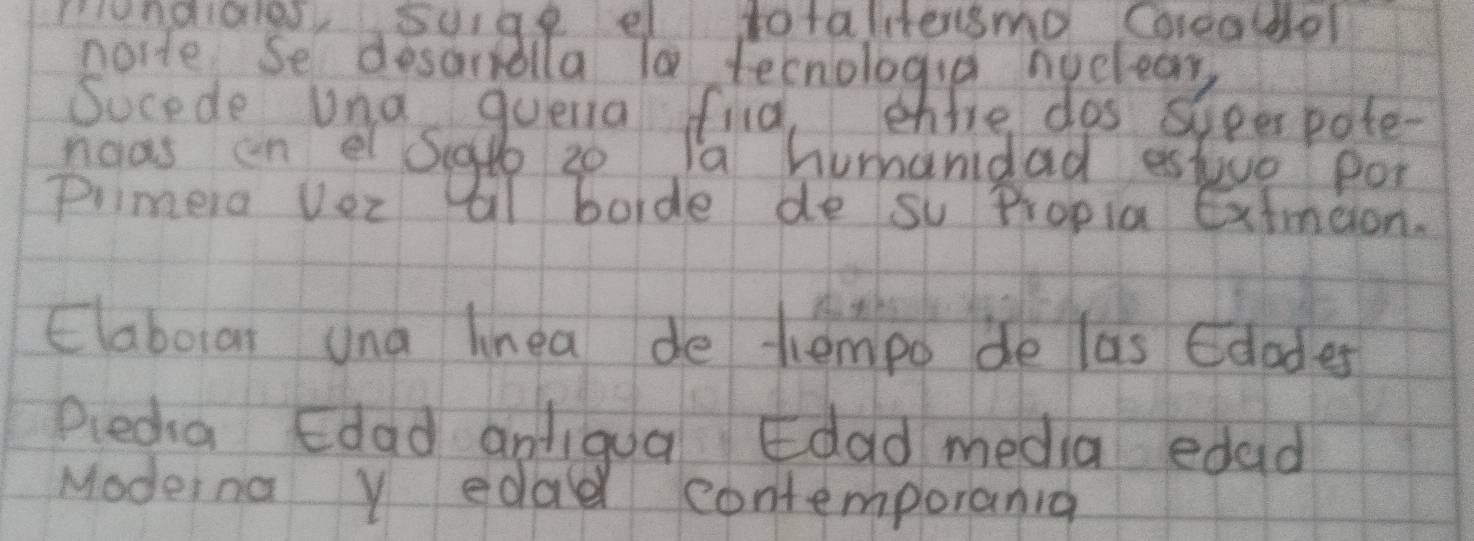 mundiales, surge el totaliterismo Corea del
norte se desarrolla la tecnologia nuclear,
Sucede una guerra fria, entre dos superpote-
ncias en el Siglo 20 la humanidad estuvo por
Primera vez al borde de su Propia Extincion.
Elaborar una linea de tiempo de las Edades
Piedra Edad antigua Edad media edad
Moderna y edad contemporania